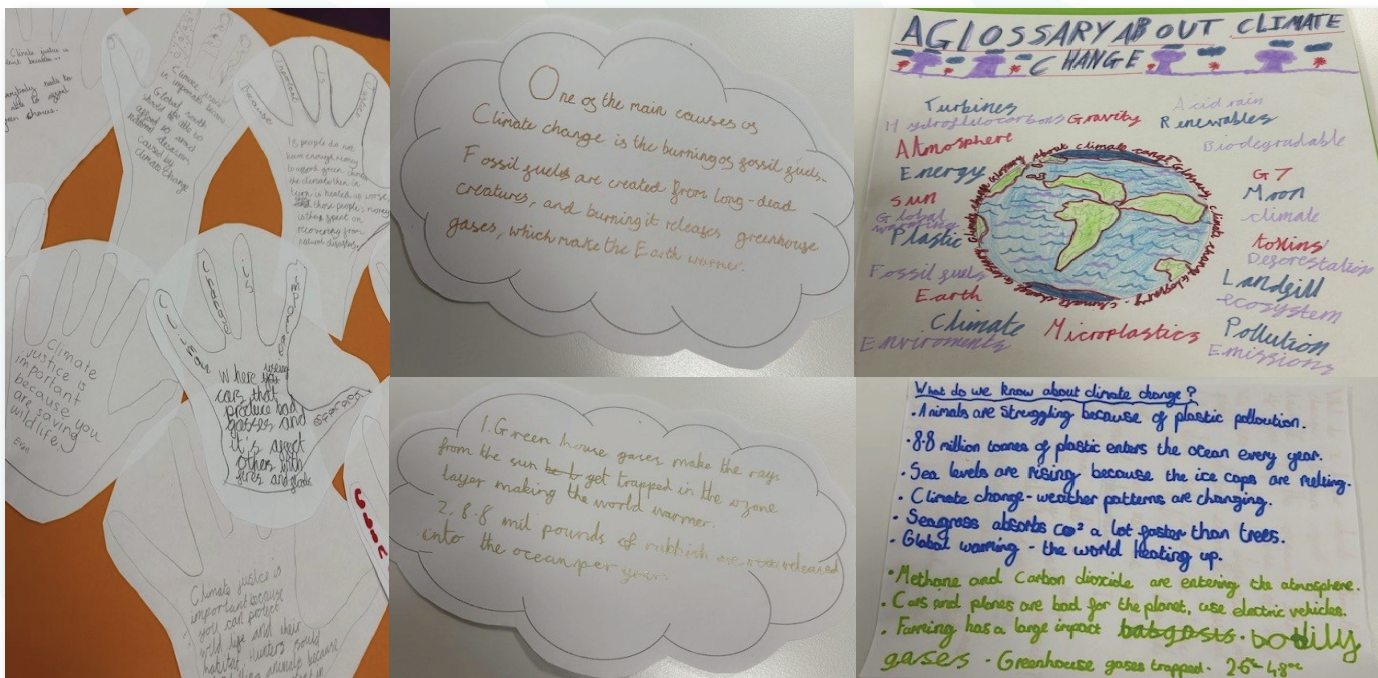 Climate justice is
because...
everybody needs to
be able to afford
green choices.
Climate justice
is important because
Global south
should be able to
afford to avoid
natural decision
caused by
climate change
Because
Important
Is
If people do not
have enough money
to afford green
the climate then in
turn is heated up worse,
and those people's money
is then spent on
recovering from
natural disasters
Climate
justice is
important
because you
are saving
wildlife.
Climat
change
is
impor
Where using
cars that
produce bad
gasses and
it's affect
others with
fires and floods
Climate justice is
important because
you can protect
wild life and their
habitat, hunters should
animals because
One of the main causes of
Climate change is the burning of fossil fuels.
Fossil fuels are created from long-dead
creatures, and burning it releases greenhouse
gases, which make the Earth warmer.
1. Green house gases make the rays
from the sun get trapped in the ozone
layer making the world warmer.
2. 8.8 mil pounds of rubbish are released
into the ocean per year
A GLOSSARY ABOUT CLIMATE
CHANGE
Turbines
Acid rain
Hydrofluorocarbons Gravity Renewables
Atmosphere
Biodegradable
Energy
G7
Sun
Moon
Global
warming
climate
Plastic
toxins
Deforestation
Fossil fuels
Landfill
Earth
ecosystem
Climate
Microplastics
Pollution
Enviroments
Emissions
What do we know about climate change?
• Animals are struggling because of plastic polloution.
• 8.8 million tonnes of plastic enters the ocean every year.
• Sea levels are rising because the ice caps are melting.
• Climate change - weather patterns are changing.
• Seagrass absorbs co² a lot faster than trees.
• Global warming - the world heating up.
• Methane and Carbon dioxide are entering the atmosphere.
• Cars and planes are bad for the planet, use electric vehicles.
• Farming has a large impact · bodily
gases · Greenhouse gases trapped ·